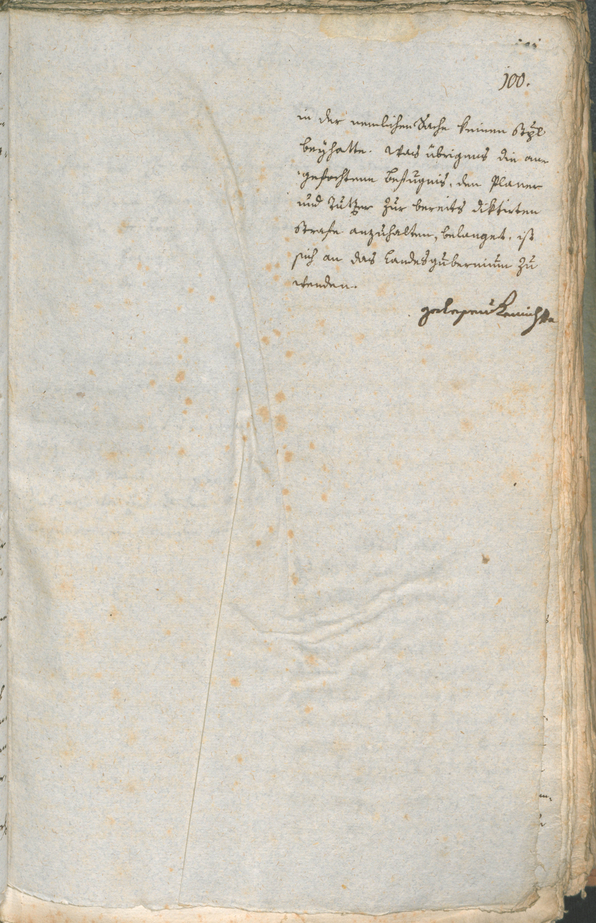 100.
in der nemlichen Sache keinen Styl
beyhatte. Was übrigens die an
gefochtene Befugnis, den Planer
und Tutzer zur bereits diktirten
Strafe anzuhalten, belanget, ist
sich an das Landesgubernium zu
wenden.
gelesen